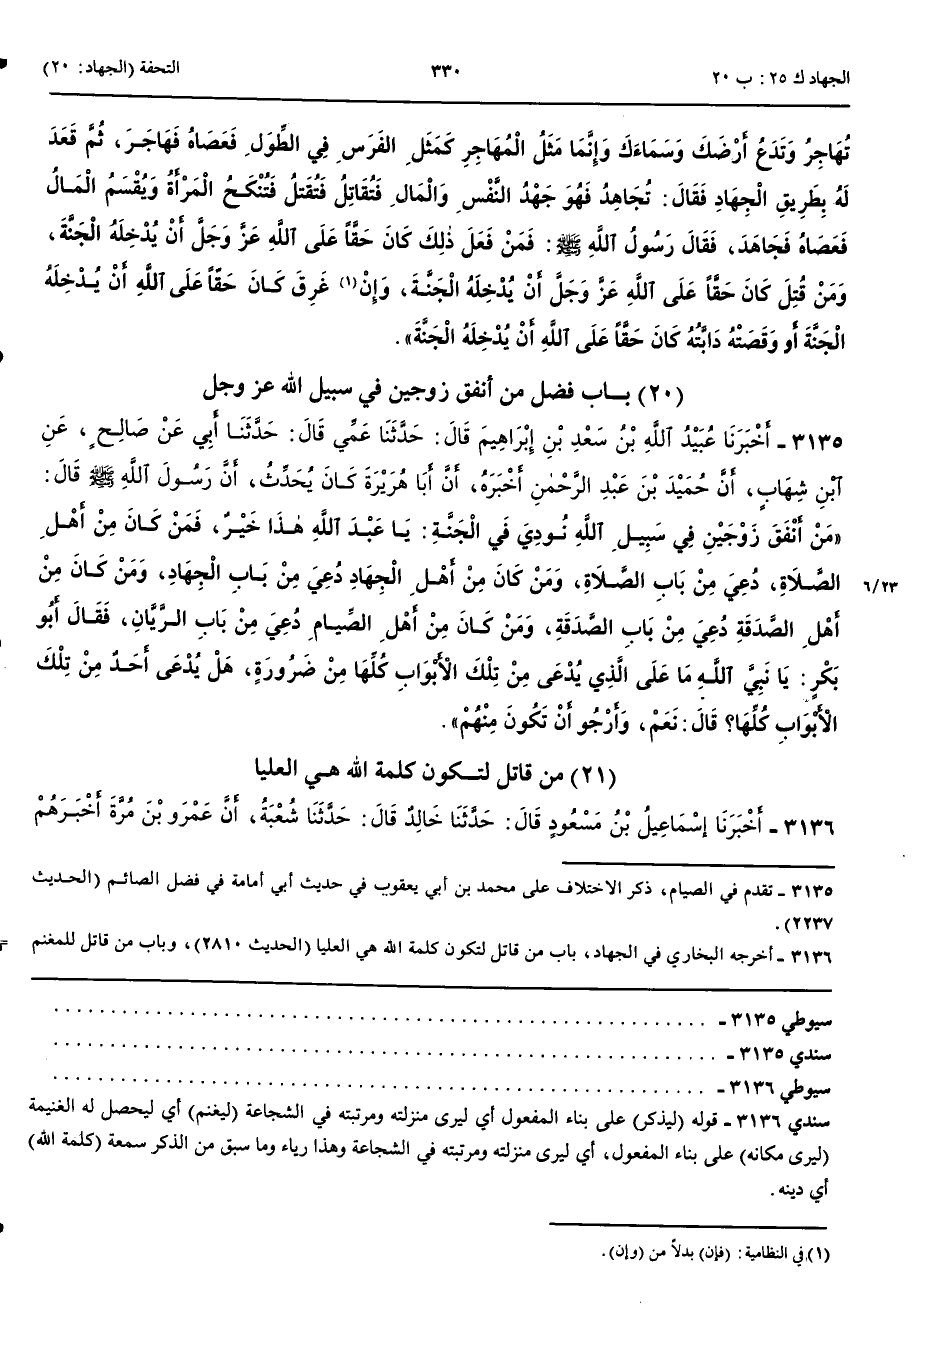 الجهاد ك ٢٥ : ب ٢٠
٣٣٠
التحفة (الجهاد: ٢٠)
تُهَاجِرُ وَتَدَعُ أَرْضَكَ وَسَمَاءَكَ وَإِنَّمَا مَثَلُ الْمُهَاجِرِ كَمَثَلِ الفَرَسِ فِي الطِّوَلِ فَعَصَاهُ فَهَاجَرَ، ثُمَّ قَعَدَ
لَهُ بِطَرِيقِ الْجِهَادِ فَقَالَ: تُجَاهِدُ فَهُوَ جَهْدُ النَّفْسِ وَالْمَالِ فَتُقَاتِلُ فَتُقْتَلُ فَتُنْكَحُ الْمَرْأَةُ وَيُقْسَمُ الْمَالُ
فَعَصَاهُ فَجَاهَدَ، فَقَالَ رَسُولُ اللَّهِ ﷺ: فَمَنْ فَعَلَ ذٰلِكَ كَانَ حَقَّاً عَلَى اللَّهِ عَزَّ وَجَلَّ أَنْ يُدْخِلَهُ الْجَنَّةَ،
وَمَنْ قُتِلَ كَانَ حَقَّاً عَلَى اللَّهِ عَزَّ وَجَلَّ أَنْ يُدْخِلَهُ الْجَنَّةَ، وَإِنْ(١) غَرِقَ كَانَ حَقّاً عَلَى اللَّهِ أَنْ يُدْخِلَهُ
الْجَنَّةَ أَو وَقَصَتْهُ دَابَّتُهُ كَانَ حَقّاً عَلَى اللَّهِ أَنْ يُدْخِلَهُ الْجَنَّةَ».
(٢٠) بـاب فضل من أنفق زوجين في سبيل الله عز وجل
٣١٣٥ ـ أَخْبَرَنَا عُبَيْدُ اللَّهِ بْنُ سَعْدِ بْنِ إِبْرَاهِيمَ قَالَ: حَدَّثَنَا عَمِّي قَالَ: حَدَّثَنَا أَبِي عَنْ صَالِحٍ، عَنِ
ابْنِ شِهَابٍ، أَنَّ حُمَيْدَ بْنَ عَبْدِ الرَّحْمٰنِ أَخْبَرَهُ، أَنَّ أَبَا هُرَيْرَةَ كَانَ يُحَدِّثُ، أَنَّ رَسُولَ اللَّهِ ﷺ قَالَ:
«مَنْ أَنْفَقَ زَوْجَيْنِ فِي سَبِيلِ اللَّهِ نُودِيَ فِي الْجَنَّةِ: يَا عَبْدَ اللَّهِ هٰذَا خَيْرٌ، فَمَنْ كَانَ مِنْ أَهْلِ
الصَّلَاةِ، دُعِيَ مِنْ بَابِ الصَّلَاةِ، وَمَنْ كَانَ مِنْ أَهْلِ الْجِهَادِ دُعِيَ مِنْ بَابِ الْجِهَادِ، وَمَنْ كَانَ مِنْ
٦/٢٣
أَهْلِ الصَّدَقَةِ دُعِيَ مِنْ بَابِ الصَّدَقَةِ، وَمَنْ كَانَ مِنْ أَهْلِ الصِّيَامِ دُعِيَ مِنْ بَابِ الرَّيَّانِ، فَقَالَ أَبُو
بَكْرٍ: يَا نَبِيَّ اللَّهِ مَا عَلَى الَّذِي يُدْعَى مِنْ تِلْكَ الْأَبْوَابِ كُلِّهَا مِنْ ضَرُورَةٍ، هَلْ يُدْعَى أَحَدٌ مِنْ تِلْكَ
الْأَبْوَابِ كُلِّهَا؟ قَالَ: نَعَمْ، وَأَرْجُو أَنْ تَكُونَ مِنْهُمْ».
(٢١) من قاتل لتـكون كلمة الله هي العليا
٣١٣٦ ـ أَخْبَرَنَا إِسْمَاعِيلُ بْنُ مَسْعُودٍ قَالَ: حَدَّثَنَا خَالِدٌ قَالَ: حَدَّثَنَا شُعْبَةُ، أَنَّ عَمْرَو بْنَ مُرَّةَ أَخْبَرَهُمْ
٣١٣٥ ـ تقدم في الصيام، ذكر الاختلاف على محمد بن أبي يعقوب في حديث أبي أمامة في فضل الصائم (الحديث
٢٢٣٧).
٣١٣٦ ـ أخرجه البخاري في الجهاد، باب من قاتل لتكون كلمة الله هي العليا (الحديث ٢٨١٠)، وباب من قاتل للمغنم =
سيوطي ٣١٣٥ ـ . . . . . . . . . . . . . . . . . . . .
سندي ٣١٣٥ ـ . . . . . . . . . . . . . . . . . . . .
سيوطي ٣١٣٦ ـ . . . . . . . . . . . . . . . . . . . .
سندي ٣١٣٦ ـ قوله (ليذكر) على بناء المفعول أي ليرى منزلته ومرتبته في الشجاعة (ليغنم) أي ليحصل له الغنيمة
(ليرى مكانه) على بناء المفعول، أي ليرى منزلته ومرتبته في الشجاعة وهذا رياء وما سبق من الذكر سمعة (كلمة الله)
أي دينه.
(١) في النظامية: (فإن) بدلاً من (وإن).